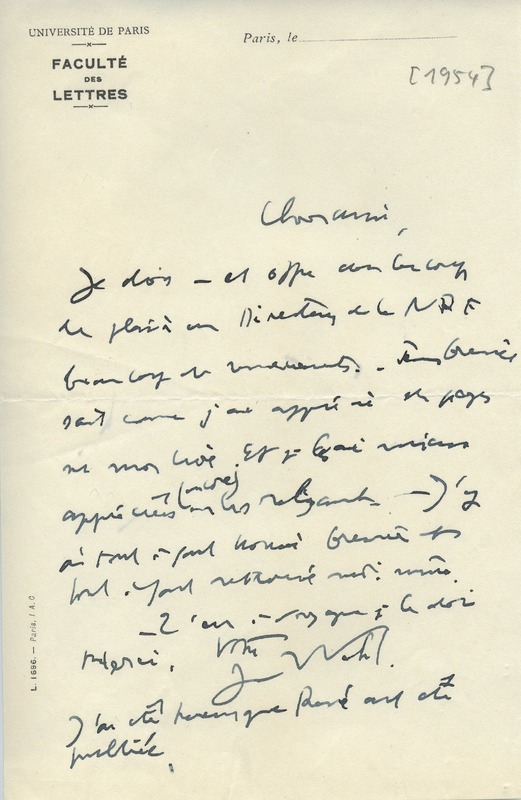 UNIVERSITÉ DE PARIS
FACULTÉ
DES
LETTRES
Paris, le
[1954]
Cher ami,
Je dois – et offre avec beaucoup
de plaisir au Directeur de la NRF
beaucoup de remerciements. – Jean Grenier
sait comme j'ai apprécié ses pages
sur mon livre. Et je les ai mieux
appréciées (encore) en les relisant. – J'y
ai tout à fait trouvé Grenier et
tout à fait retrouvé moi-même.
merci. Votre
Jean Wahl.
J'ai été heureux que ait été
publiée.
L. 1696. — Paris. I.A.C.